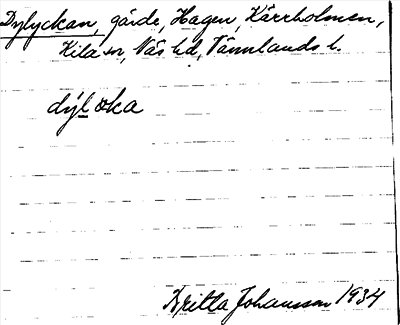 Dylyckan, gärde, Hagen, Kärrholmen,
Kila sn, Näs hd, Värmlands l.
dýl øka
Britta Johansson 1934